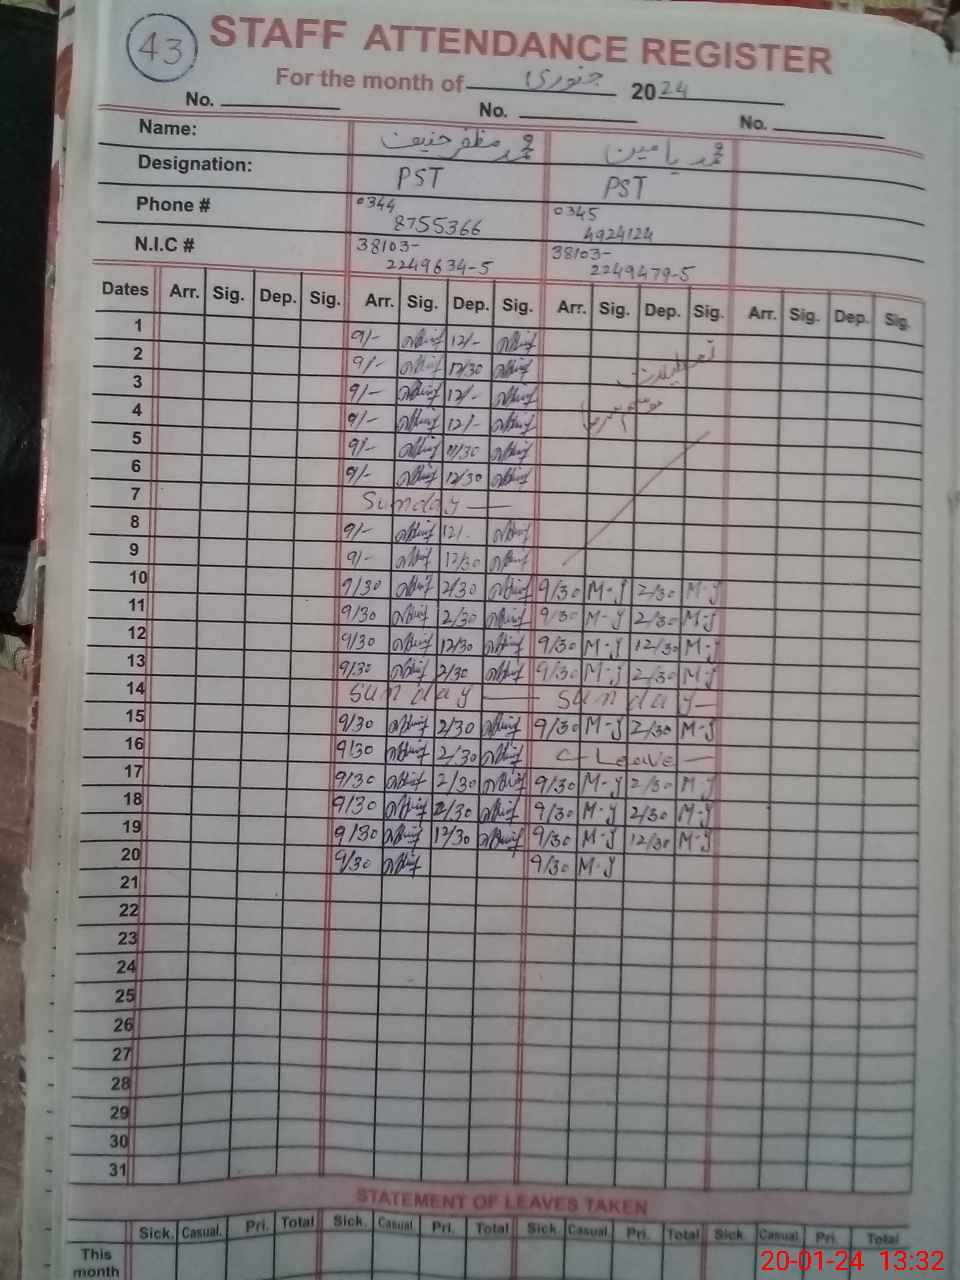 43
STAFF ATTENDANCE REGISTER
For the month of جنوری 2024
No. No. No.
Name: محمد مظفر حنیف محمد یامین
Designation: PST PST
Phone # 0344 8755366 0345 4924124
N.I.C # 38103- 2249634-5 38103- 2249479-5
Dates Arr. Sig. Dep. Sig. Arr. Sig. Dep. Sig. Arr. Sig. Dep. Sig. Arr. Sig. Dep. Sig.
1 9/- 12/-
2 9/- 12/30 تعطیلات
3 9/- 12/-
4 9/- 12/- موسم سرما
5 9/- 11/30
6 9/- 12/30
7 Sunday
8 9/- 12/-
9 9/- 12/30
10 9/30 2/30 9/30 M-y 2/30 M-y
11 9/30 2/30 9/30 M-y 2/30 M-y
12 9/30 12/30 9/30 M-y 12/30 M-y
13 9/30 2/30 9/30 M-y 2/30 M-y
14 Sunday — Sunday —
15 9/30 2/30 9/30 M-y 2/30 M-y
16 9/30 2/30 C-Leave —
17 9/30 2/30 9/30 M-y 2/30 M-y
18 9/30 2/30 9/30 M-y 2/30 M-y
19 9/30 12/30 9/30 M-y 12/30 M-y
20 9/30 9/30 M-y
21
22
23
24
25
26
27
28
29
30
31
STATEMENT OF LEAVES TAKEN
Sick. Casual. Pri. Total Sick. Casual. Pri. Total Sick. Casual. Pri. Total Sick. Casual. Pri. Total
This month
20-01-24 13:32